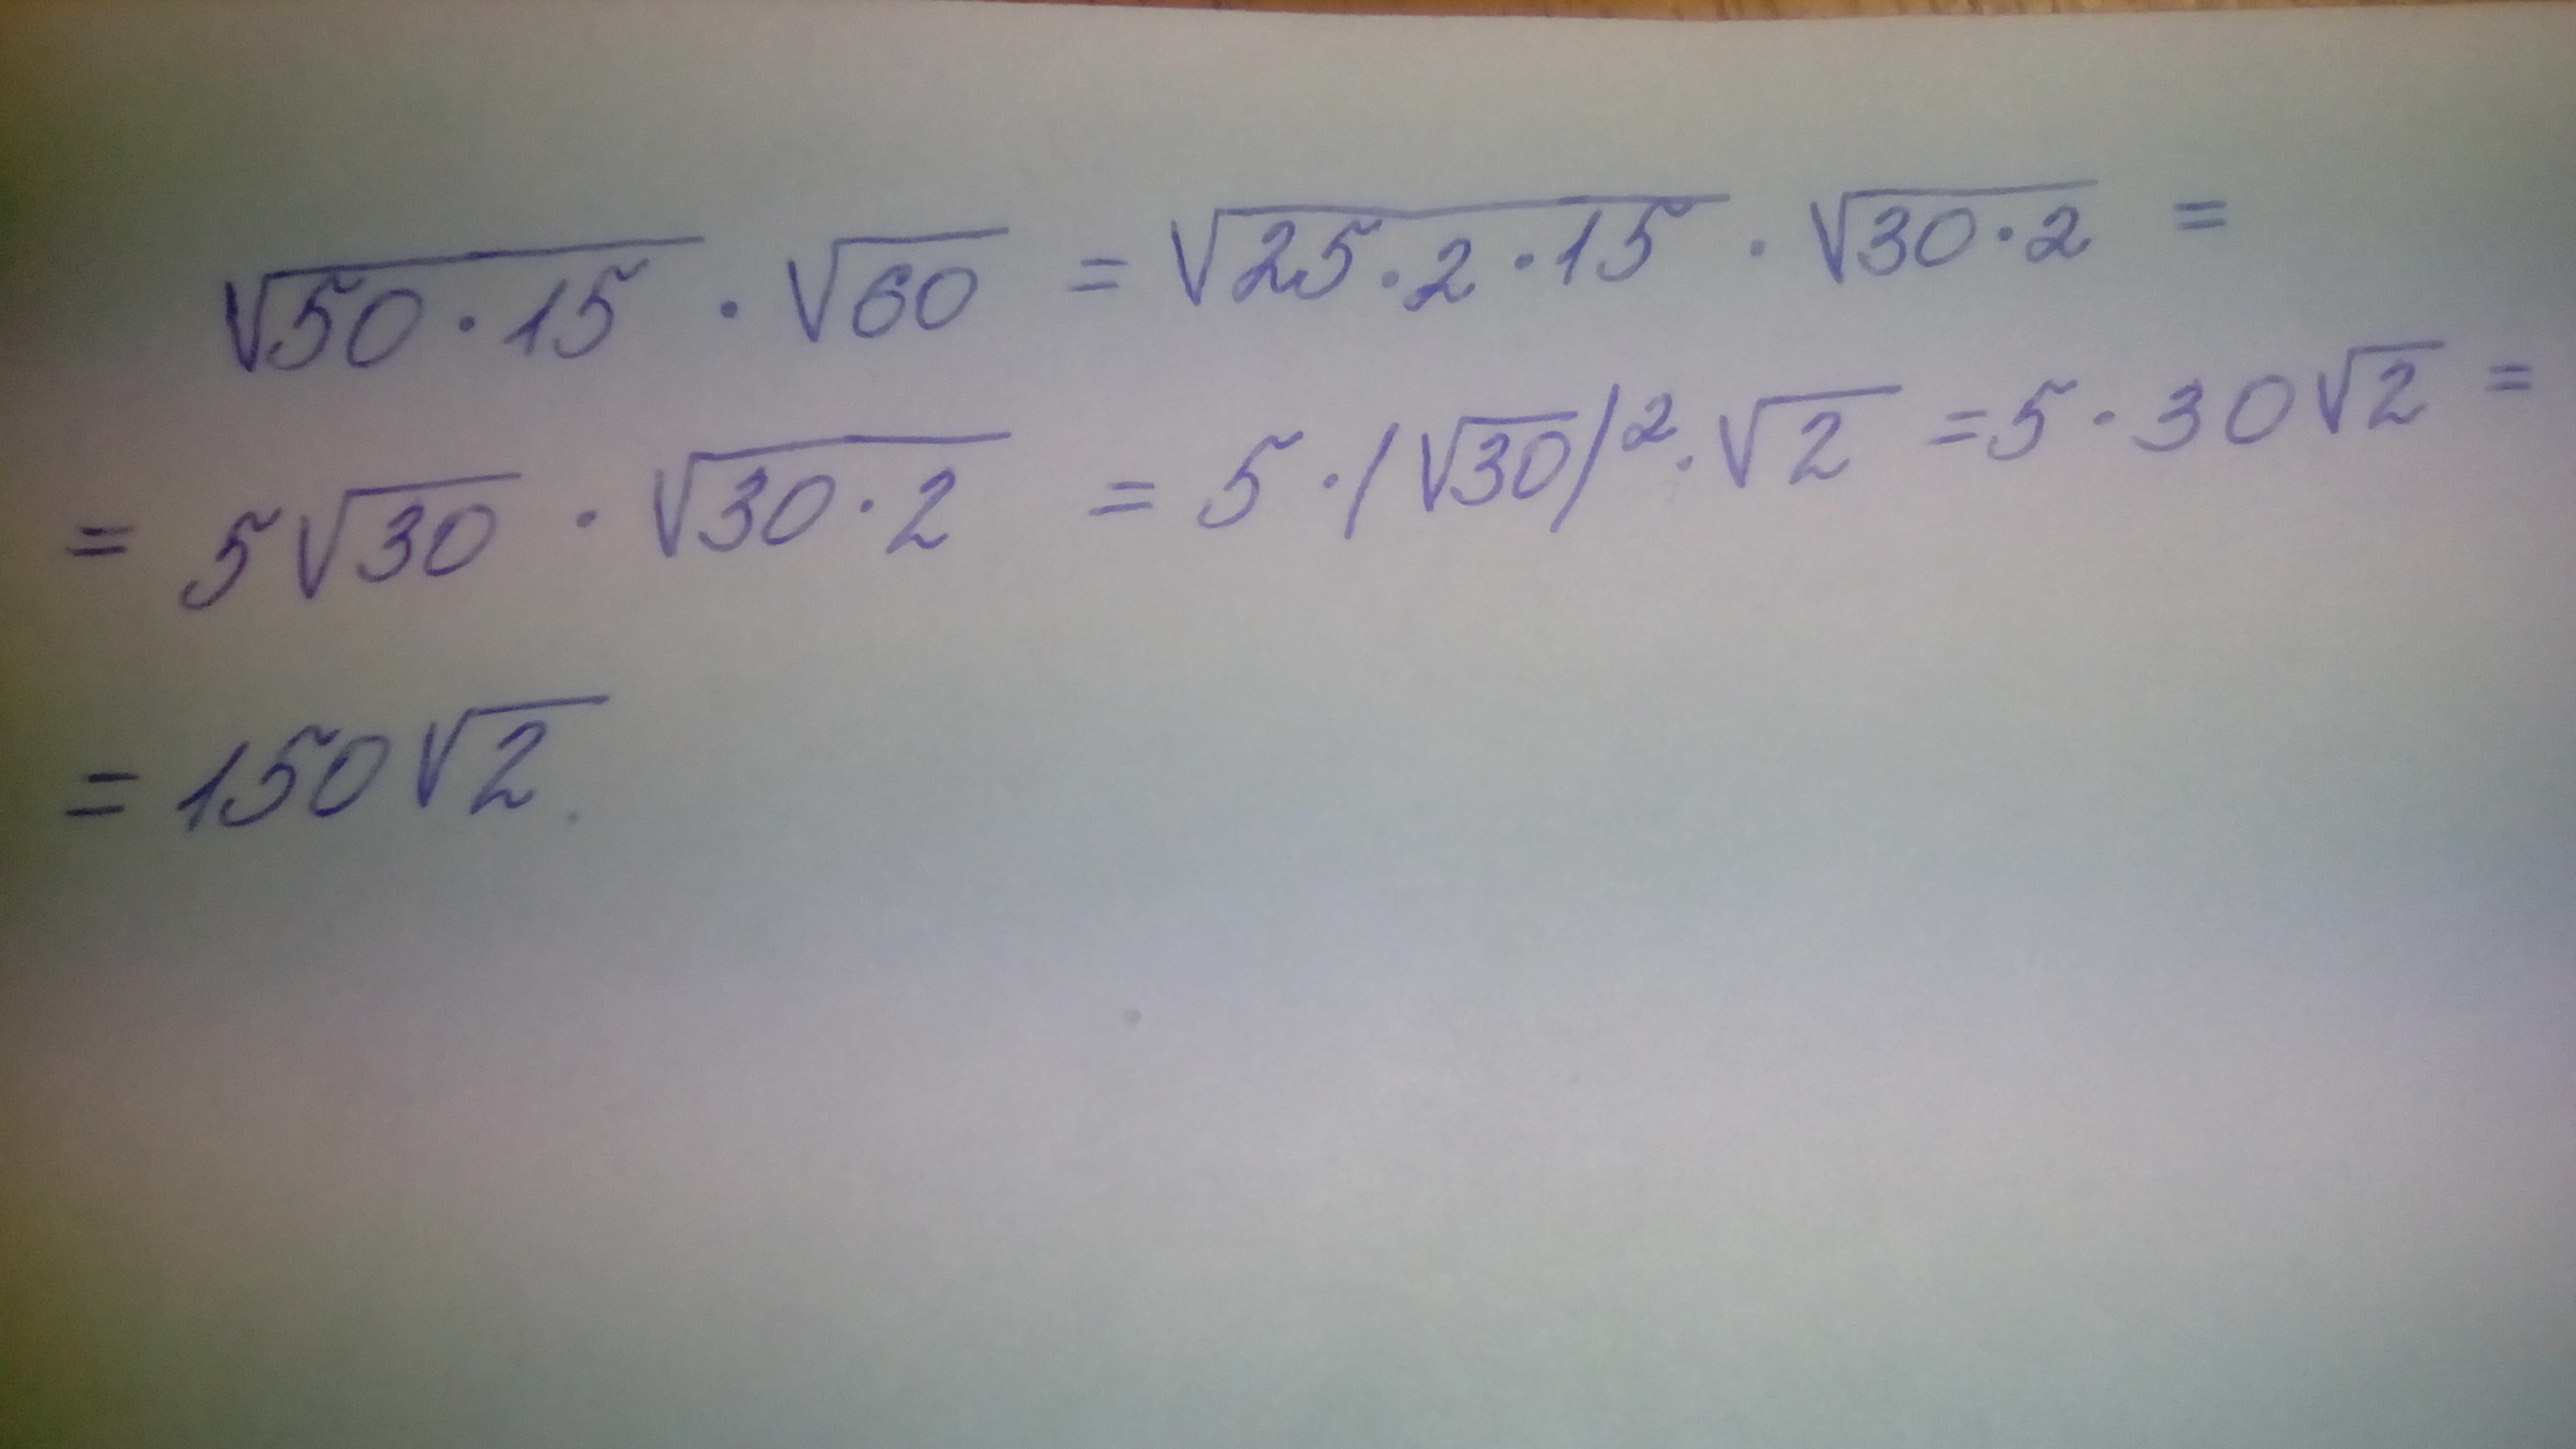 √50·15 · √60 = √25·2·15 · √30·2 =
= 5√30 · √30·2 = 5·(√30)²·√2 = 5·30√2 =
= 150√2.